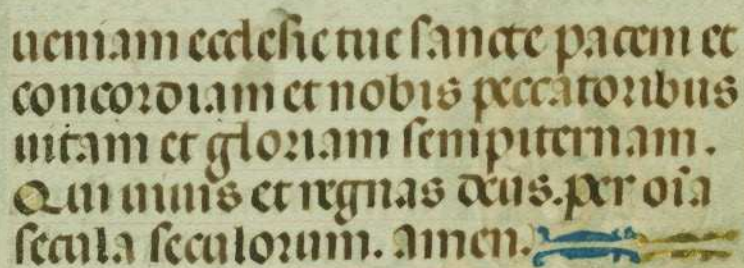 ueniam ecclesie tue sancte pacem et
concordiam et nobis peccatoribus
uitam et gloriam sempiternam.
Qui uiuis et regnas deus. per oı̃a
secula seculorum. amen.